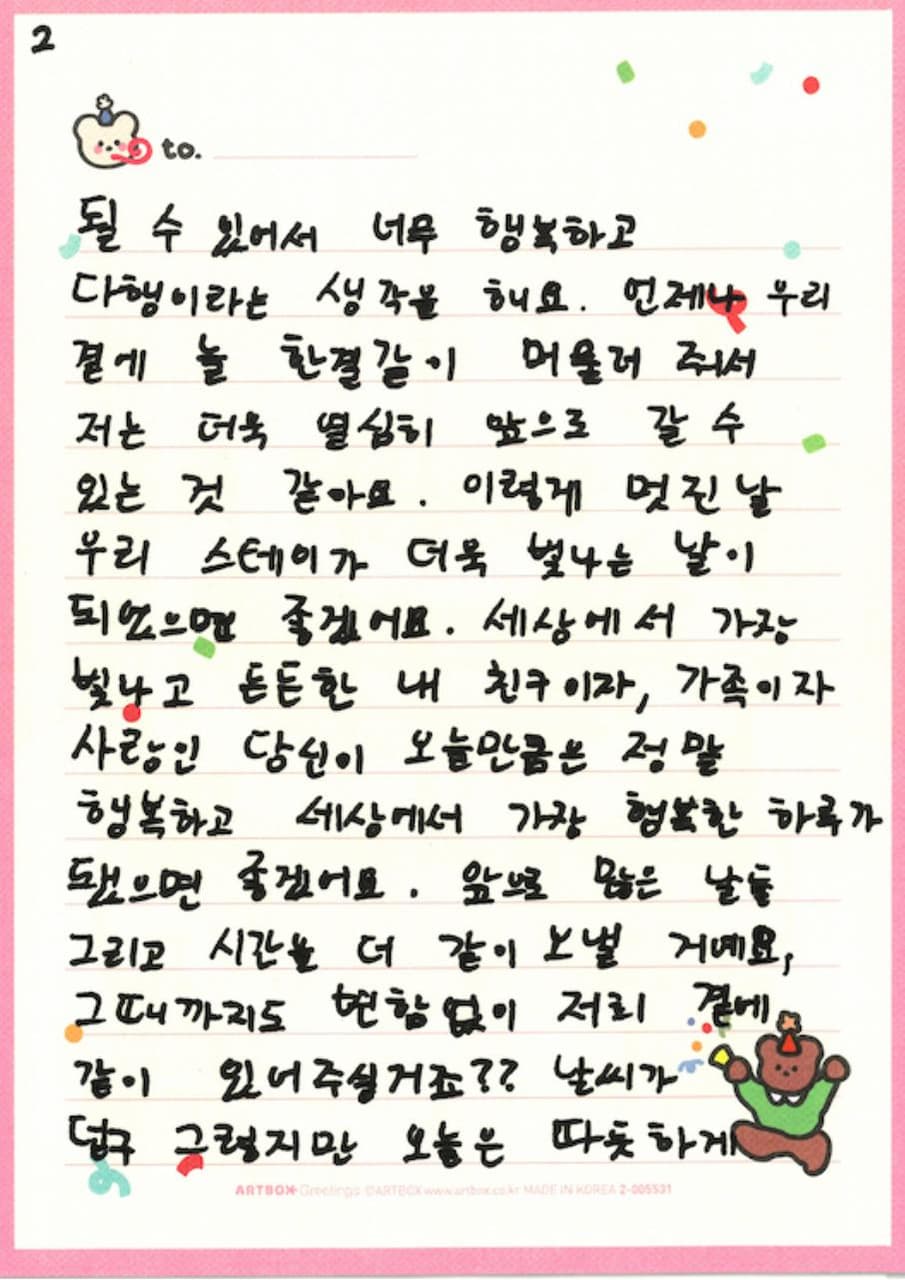 2
to.
될 수 있어서 너무 행복하고
다행이라는 생각을 해요. 언제나 우리
곁에 늘 한결같이 머물러 줘서
저는 더욱 열심히 앞으로 갈 수
있는 것 같아요. 이렇게 멋진 날
우리 스테이가 더욱 빛나는 날이
되었으면 좋겠어요. 세상에서 가장
빛나고 든든한 내 친구이자, 가족이자
사랑인 당신이 오늘만큼은 정말
행복하고 세상에서 가장 행복한 하루가
됐으면 좋겠어요. 앞으로 많은 날들
그리고 시간을 더 같이 보낼 거예요,
그때까지도 변함 없이 저희 곁에
같이 있어주실거죠?? 날씨가
덥구 그렇지만 오늘은 따듯하게
ARTBOX Greetings ©ARTBOX www.artbox.co.kr MADE IN KOREA 2-005531